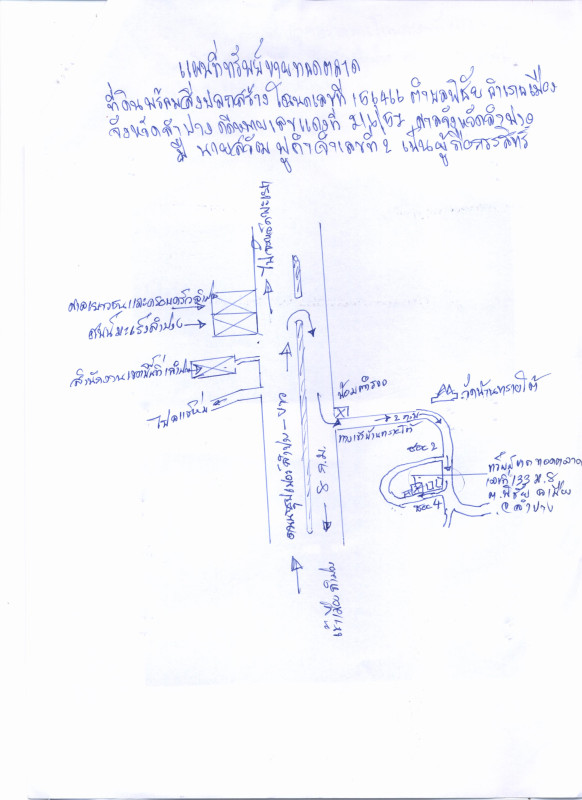 แผนที่ทรัพย์ขายทอดตลาด
ที่ดินพร้อมสิ่งปลูกสร้าง โฉนดเลขที่ 156466 ตำบลพิชัย อำเภอเมือง
จังหวัดลำปาง คดีหมายเลขแดงที่ ศาลจังหวัดลำปาง
มี นาย จำเลขที่ 2 เป็นผู้ถือกรรมสิทธิ์
ไป
ศาลเยาวชนและครอบครัวลำปาง
ศูนย์มะเร็งลำปาง
สำนักงาน
ไป
ถนนซุปเปอร์ลำปาง-งาว
8 ก.ม.
เข้าเมืองลำปาง
ป้อมตำรวจ
2 ก.ม.
ทางเข้าบ้านทรายใต้
วัดบ้านทรายใต้
ซอย 2
ซอย 4
ทรัพย์ที่ขายทอดตลาด
เลขที่ 133 ม.8
ต.พิชัย อ.เมือง
จ.ลำปาง